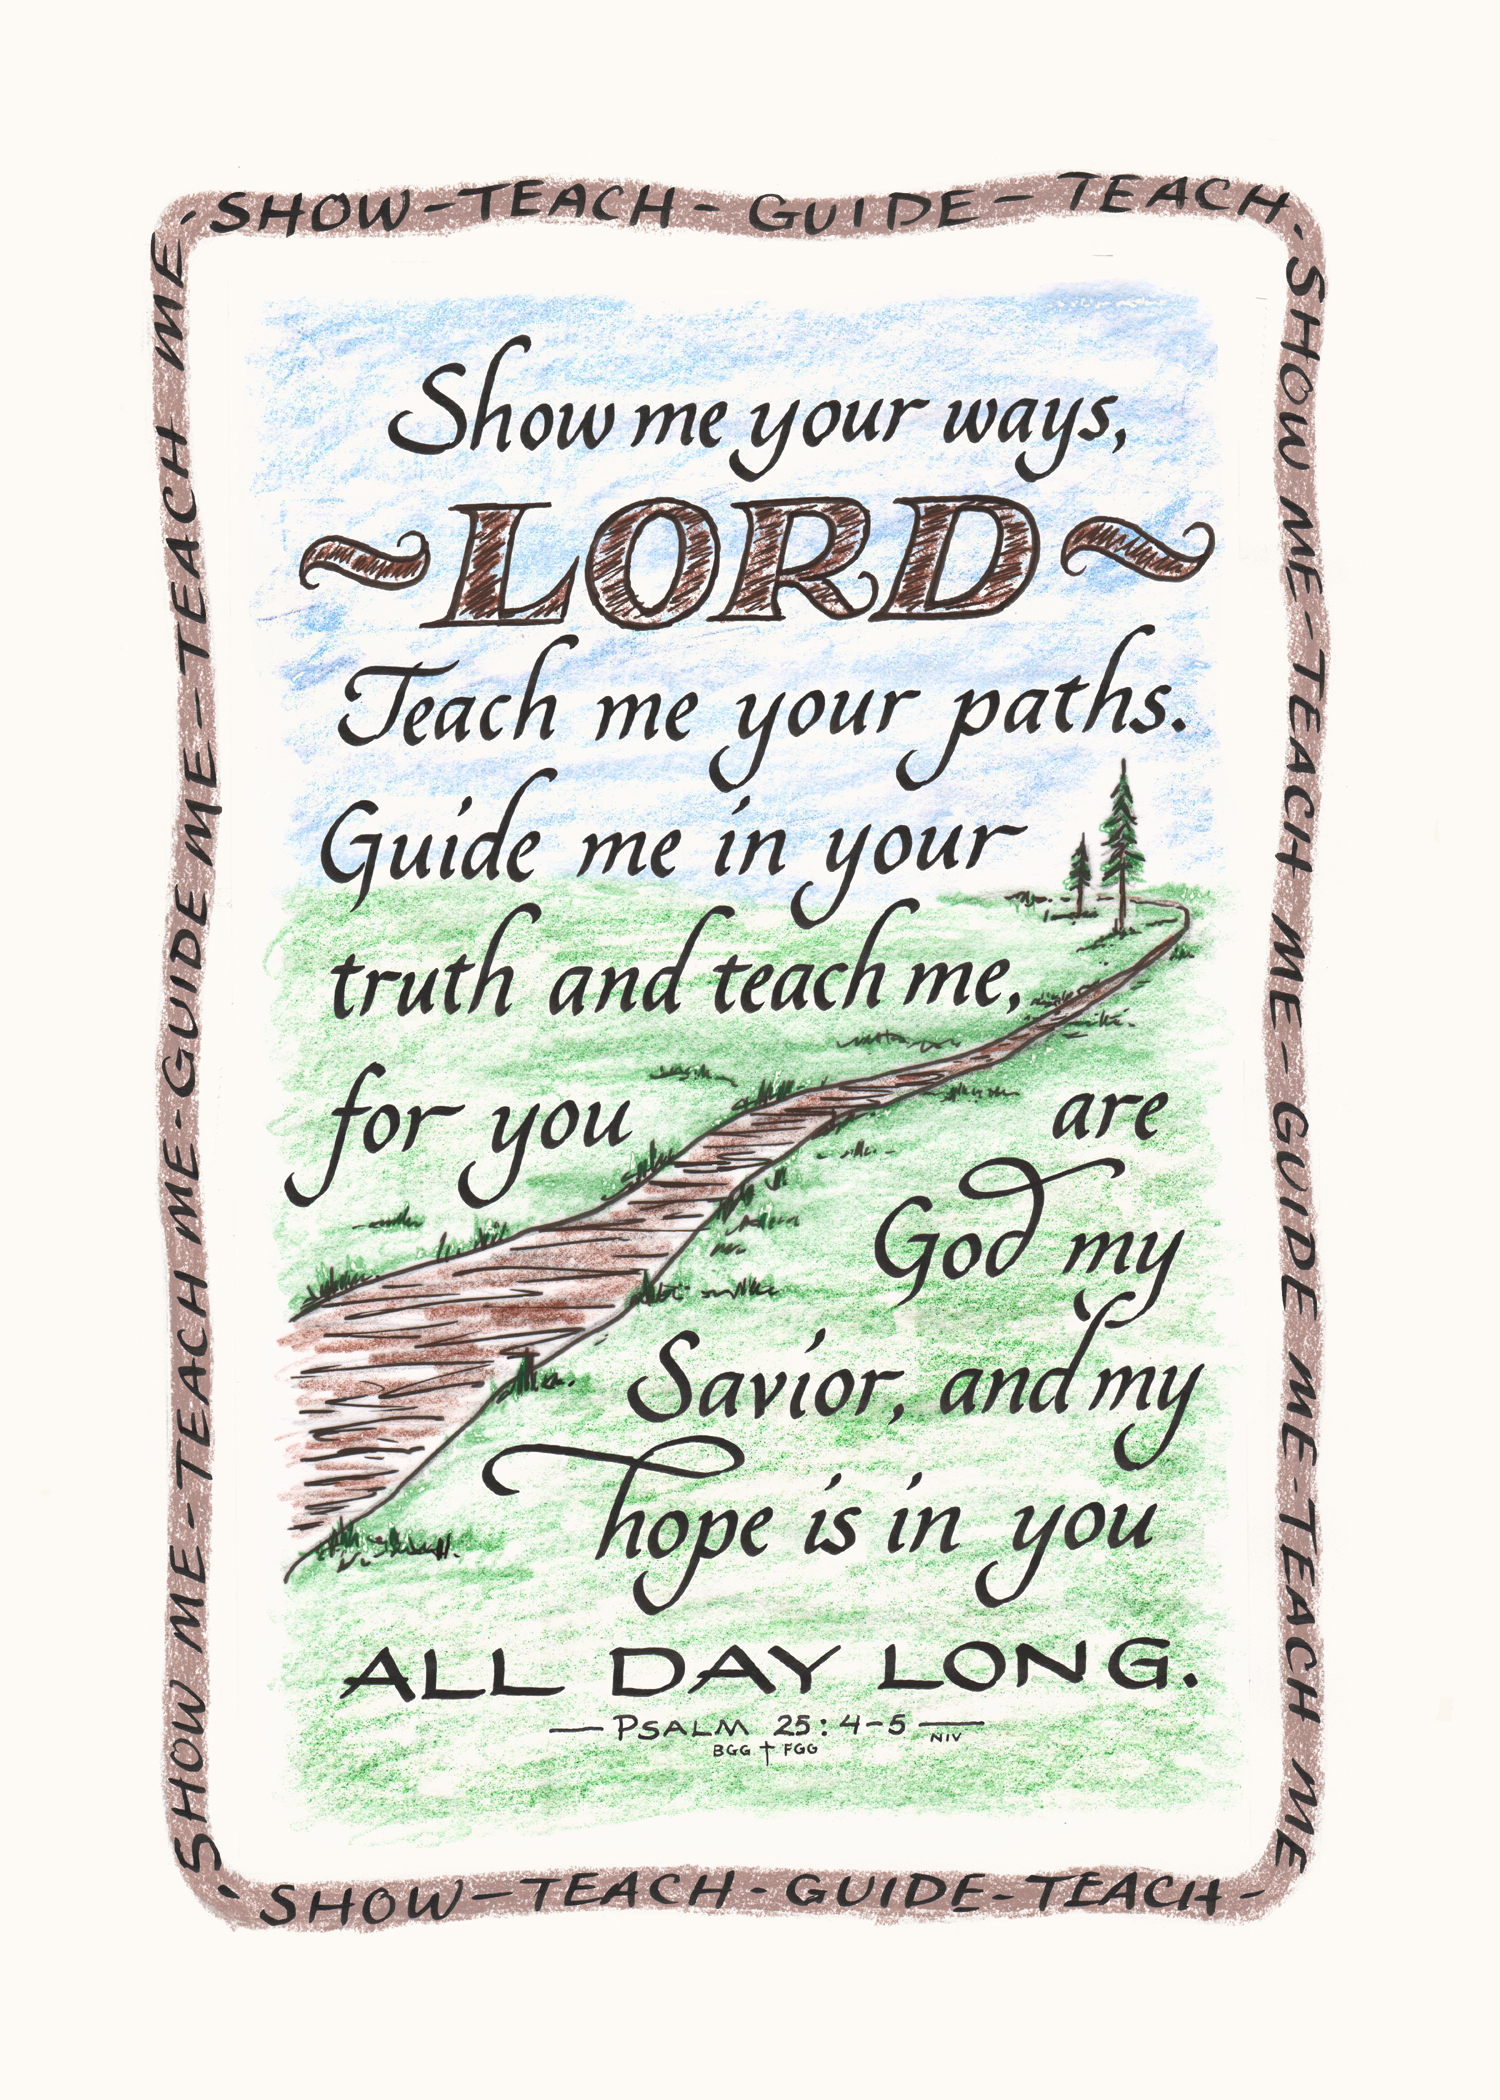 · SHOW - TEACH - GUIDE - TEACH ·
SHOW ME - TEACH ME - GUIDE ME - TEACH ME
SHOW ME - TEACH ME - GUIDE ME - TEACH ME
Show me your ways,
~LORD~
Teach me your paths.
Guide me in your
truth and teach me,
for you are
God my
Savior, and my
hope is in you
ALL DAY LONG.
— PSALM 25:4-5 —
NIV
BGG † FGG
· SHOW - TEACH - GUIDE - TEACH -